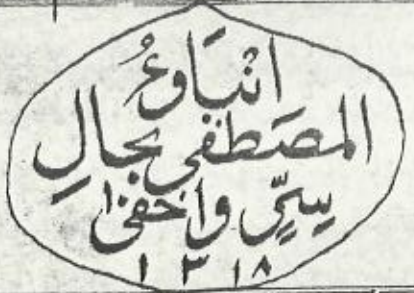 انْبَاوءُ
المصَطفٰى بحالِ
سِرٍّ واخفٰى
١٣١٨